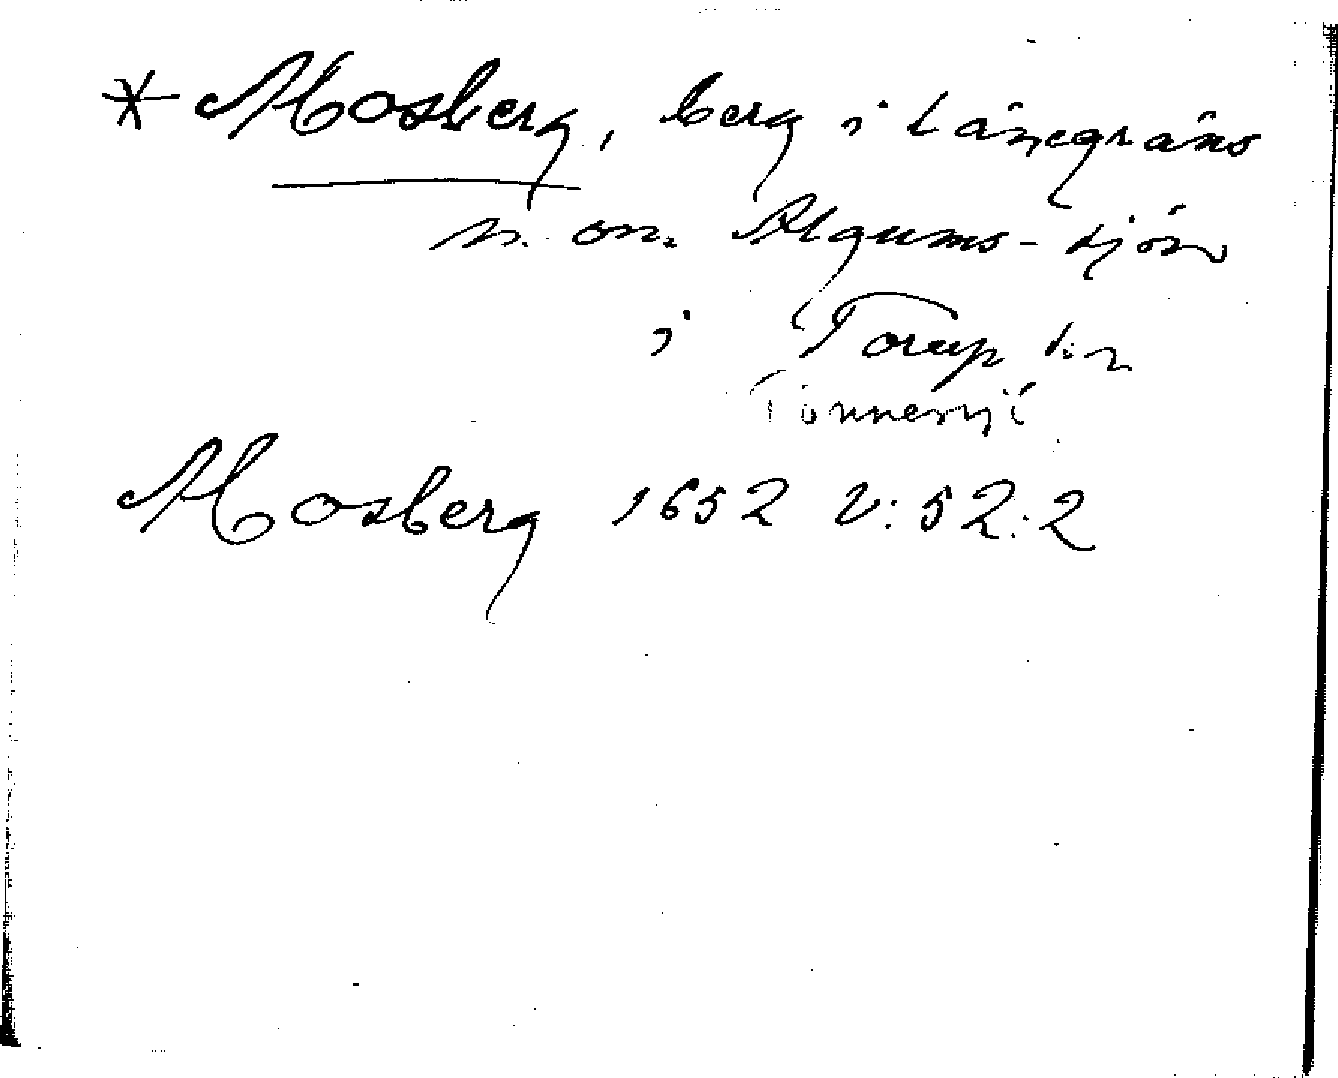 * Mosberg, berg i länegräns
n. om. Algums-sjön
i Torup sn
Tönnersjö
Mosberg 1652 V:52:2